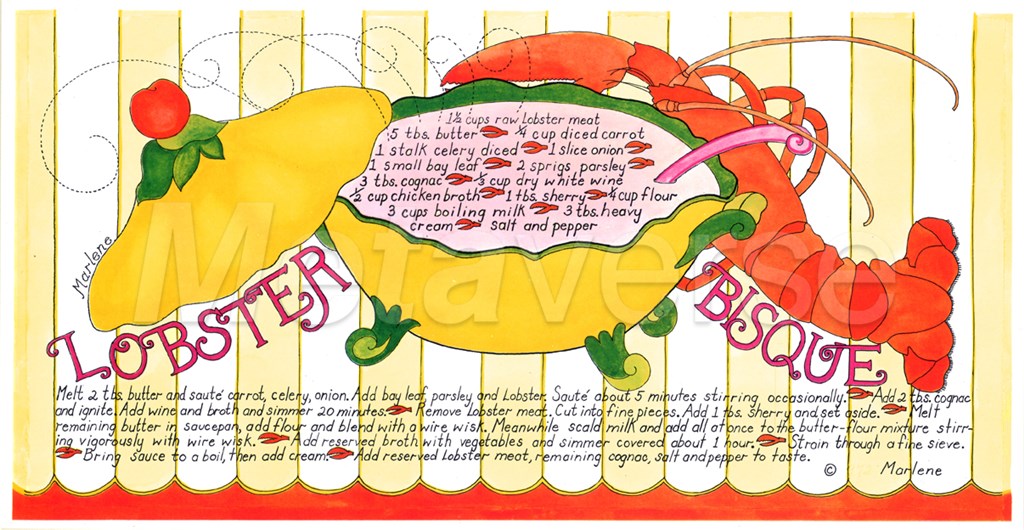 1½ cups raw lobster meat
5 tbs. butter ¼ cup diced carrot
1 stalk celery diced 1 slice onion
1 small bay leaf 2 sprigs parsley
3 tbs. cognac ⅓ cup dry white wine
½ cup chicken broth 1 tbs. sherry ¼ cup flour
3 cups boiling milk 3 tbs. heavy
cream salt and pepper
Marlene
Metaverse
LOBSTER
BISQUE
Melt 2 tbs. butter and sauté carrot, celery, onion. Add bay leaf, parsley and Lobster. Sauté about 5 minutes stirring, occasionally. Add 2 tbs. cognac
and ignite. Add wine and broth and simmer 20 minutes. Remove Lobster meat. Cut into fine pieces. Add 1 tbs. sherry and set aside. Melt
remaining butter in saucepan, add flour and blend with a wire wisk. Meanwhile scald milk and add all at once to the butter-flour mixture stirr-
ing vigorously with wire wisk. Add reserved broth with vegetables and simmer covered about 1 hour. Strain through a fine sieve.
Bring sauce to a boil, then add cream. Add reserved Lobster meat, remaining cognac, salt and pepper to taste.
© Marlene